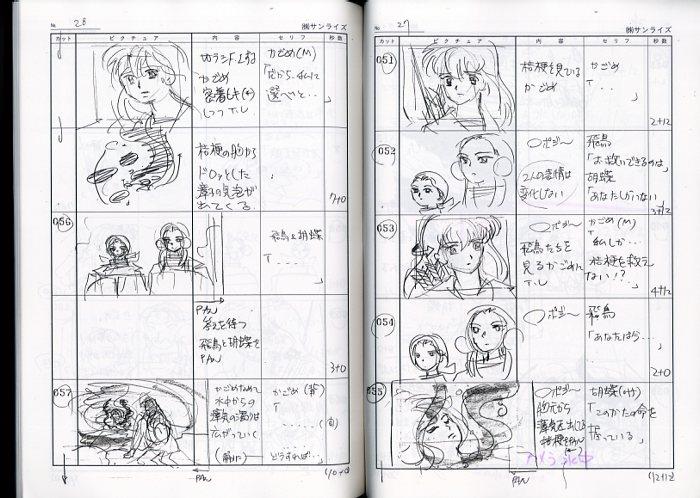 No. 27
㈱サンライズ
カット ピクチュア 内容 セリフ 秒数
051
桔梗を見ている
かごめ
かごめ
「…
」
2+12
052
○ポジ〜
2人の表情は
変化しない
飛鳥
「お救いできるのは」
胡蝶
「あなたしかいない」
3+12
053
○ポジ〜
飛鳥たちを
見るかごめに
T.U
かごめ(M)
「私しか…
桔梗を救え
ない!?
」
4+12
054
○ポジ〜
飛鳥
「あなたは…
」
2+0
055
○ポジ〜
胡蝶
「このかたの命を
握っている」
PAN
(12+12)
No. 28
㈱サンライズ
カット ピクチュア 内容 セリフ 秒数
かごめ
密着
T.U
かごめ(M)
「だから、私に
選べと…」
桔梗の胸から
ドロッとした
出てくる
7+0
056
飛鳥と胡蝶
「…
」
PAN
答えを待つ
飛鳥と胡蝶を
PAN
3+0
057
かごめなめて
水中からの
瘴気の濁りは
広がっていく
かごめ(背)
「
……
どうすれば…」
PAN
(10+0)